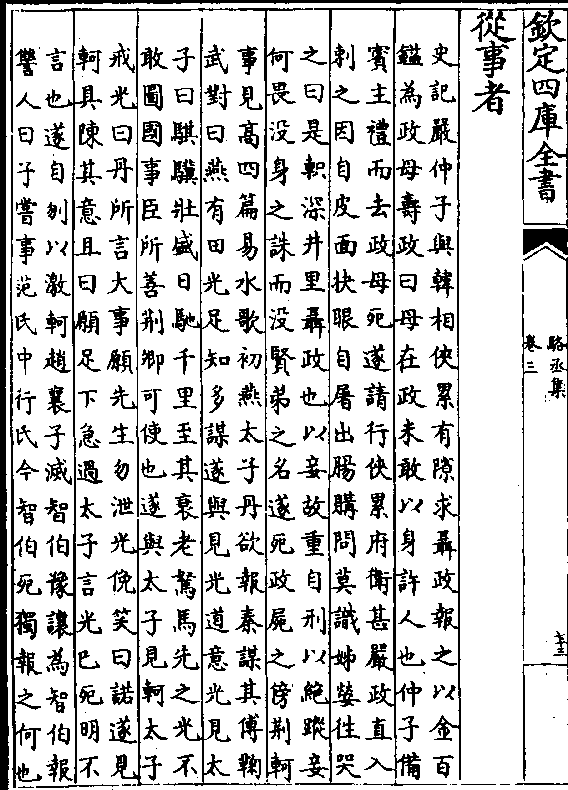 欽定四庫全書
駱丞集
卷三
十三
從事者
史記嚴仲子與韓相俠累有隙求聶政報之以金百
鎰為政母壽政曰母在政未敢以身許人也仲子備
賓主禮而去政母死遂請行俠累府衛甚嚴政直入
刺之因自皮面抉眼自屠出腸購問莫識姊嫈往哭
之曰是軹深井里聶政也以妾故重自刑以絕蹤妾
何畏没身之誅而没賢弟之名遂死政屍之傍荆軻
事見高四篇易水歌初燕太子丹欲報秦謀其傅鞠
武對曰燕有田光足知多謀遂與見光道意光見太
子曰騏驥壯盛日馳千里至其衰老駑馬先之光不
敢圖國事臣所善荆卿可使也遂與太子見軻太子
戒光曰丹所言大事願先生勿泄光俛笑曰諾遂見
軻具陳其意且曰願足下急過太子言光已死明不
言也遂自刎以激軻趙襄子滅智伯豫讓為智伯報
讐人曰子嘗事范氏中行氏今智伯死獨報之何也